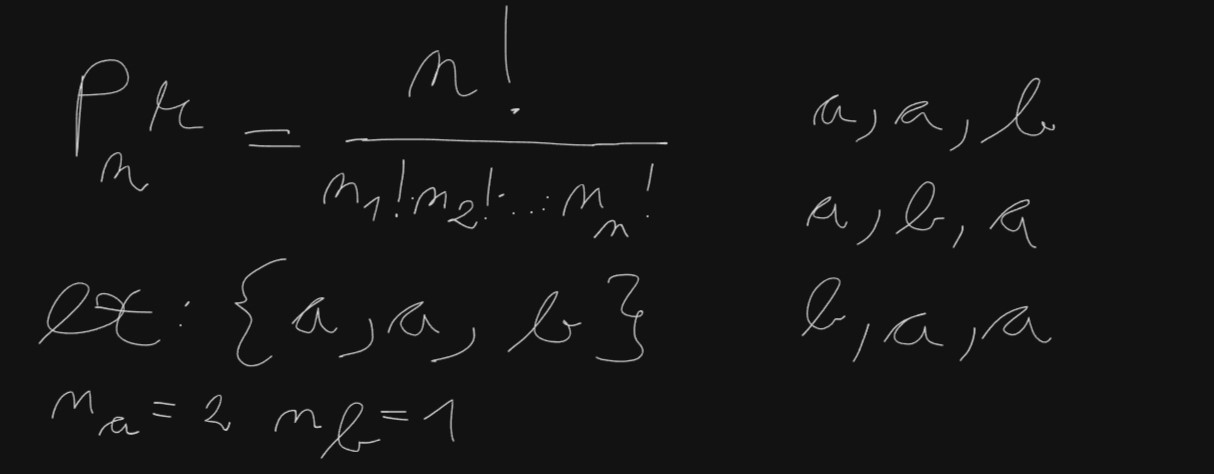 Pₙʳ = n! / n₁!·n₂!·...·nₙ!
ex: {a, a, b}
nₐ = 2 n_b = 1
a, a, b
a, b, a
b, a, a